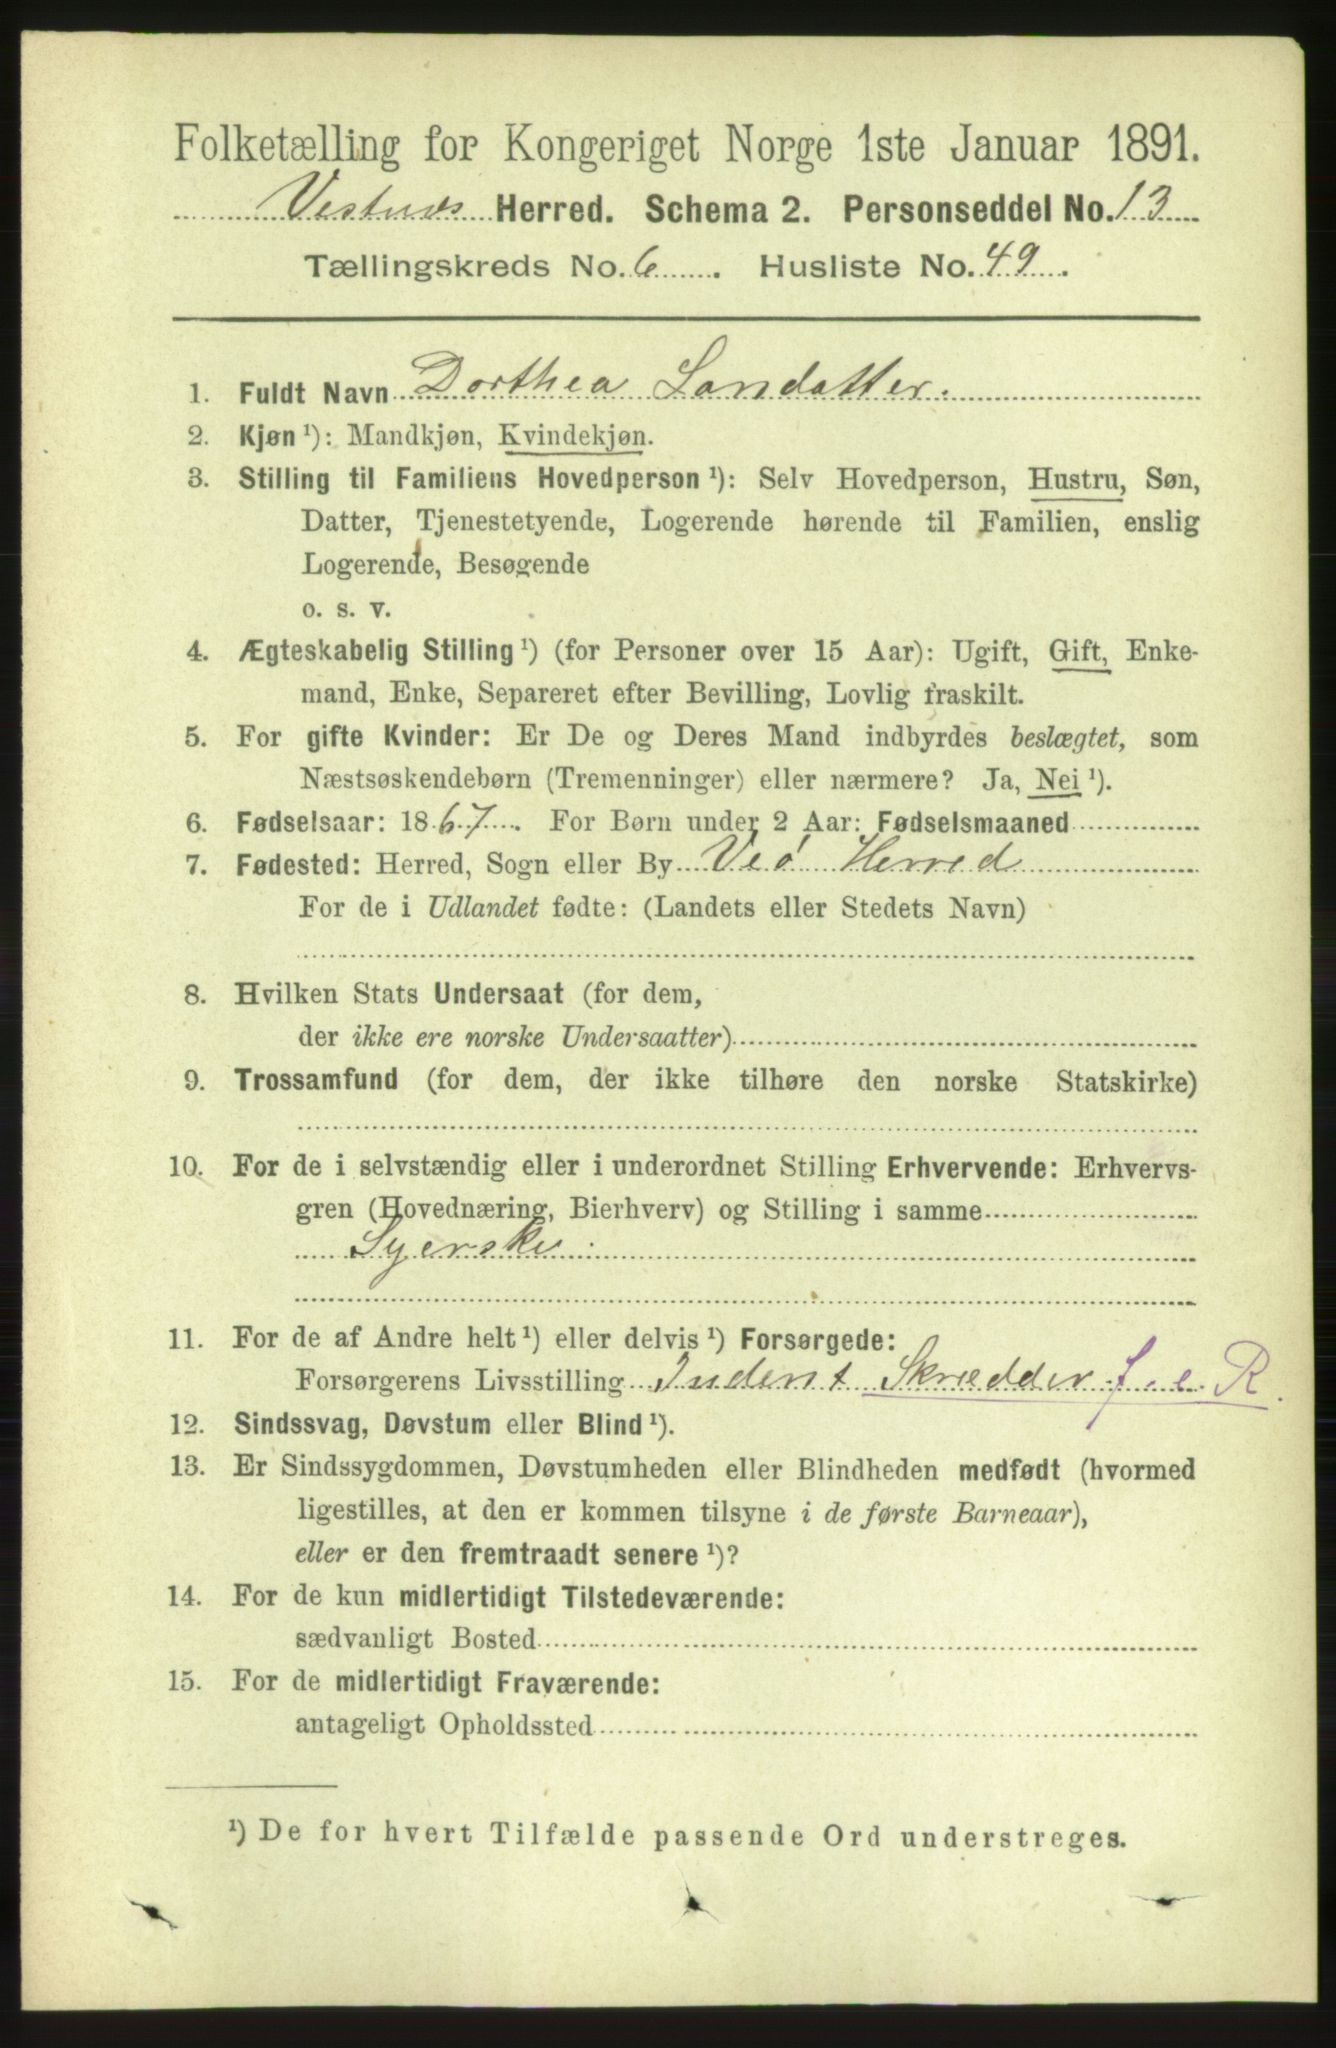 Folketælling for Kongeriget Norge 1ste Januar 1891.
Vestnæs Herred. Schema 2. Personseddel No. 13
Tællingskreds No. 6 . Husliste No. 49 .
1. Fuldt Navn Dorthea Larsdatter.
2. Kjøn ¹): Mandkjøn, Kvindekjøn.
3. Stilling til Familiens Hovedperson ¹): Selv Hovedperson, Hustru, Søn,
Datter, Tjenestetyende, Logerende hørende til Familien, enslig
Logerende, Besøgende
o. s. v.
4. Ægteskabelig Stilling ¹) (for Personer over 15 Aar): Ugift, Gift, Enke-
mand, Enke, Separeret efter Bevilling, Lovlig fraskilt.
5. For gifte Kvinder: Er De og Deres Mand indbyrdes beslægtet, som
Næstsøskendebørn (Tremenninger) eller nærmere? Ja, Nei ¹).
6. Fødselsaar: 1867. For Børn under 2 Aar: Fødselsmaaned
7. Fødested: Herred, Sogn eller By Veø Herred
For de i Udlandet fødte: (Landets eller Stedets Navn)
8. Hvilken Stats Undersaat (for dem,
der ikke ere norske Undersaatter)
9. Trossamfund (for dem, der ikke tilhøre den norske Statskirke)
10. For de i selvstændig eller i underordnet Stilling Erhvervende: Erhvervs-
gren (Hovednæring, Bierhverv) og Stilling i samme
Syerske.
11. For de af Andre helt ¹) eller delvis ¹) Forsørgede:
Forsørgerens Livsstilling Inderst Skrædder f. e. R.
12. Sindssvag, Døvstum eller Blind ¹).
13. Er Sindssygdommen, Døvstumheden eller Blindheden medfødt (hvormed
ligestilles, at den er kommen tilsyne i de første Barneaar),
eller er den fremtraadt senere ¹)?
14. For de kun midlertidigt Tilstedeværende:
sædvanligt Bosted
15. For de midlertidigt Fraværende:
antageligt Opholdssted
¹) De for hvert Tilfælde passende Ord understreges.